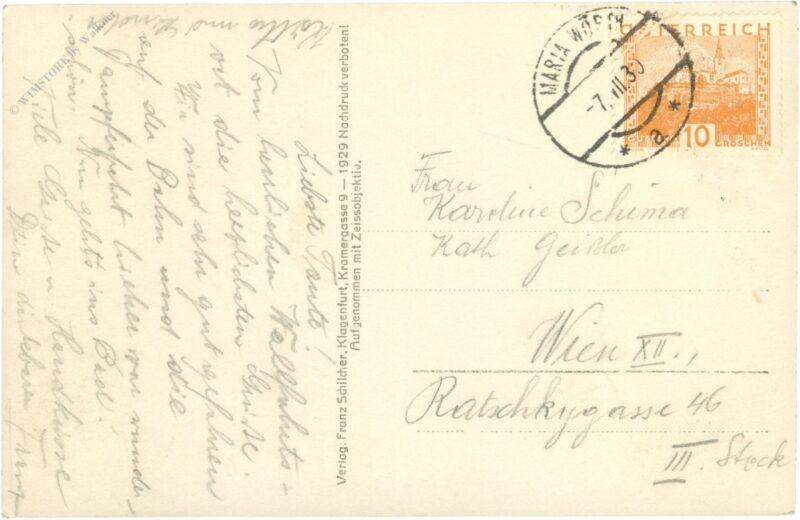 Liebste Tante!
Vom herrlichen Wallfahrts-
ort die herzlichsten Grüße.
Wir sind sehr gut gefahren
auf der Bahn und die
Dampferfahrt hierher war wunder-
schön. Nun gehts ins Bad.
Viele Grüße u. Handküsse
Dein dankbarer
und
© WIMSTORKE
Verlag: Franz Schilcher, Klagenfurt, Kramergasse 9 — 1929 Nachdruck verboten!
Aufgenommen mit Zeissobjektiv.
MARIA WÖRTH
-7. VII. 30
* a *
ÖSTERREICH
10
GROSCHEN
Frau
Karoline Schima
Kath Geißler
Wien XII.,
Ratschkygasse 46
III. Stock